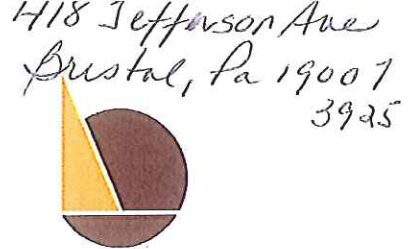 418 Jefferson Ave
Bristol, Pa 19007
3925